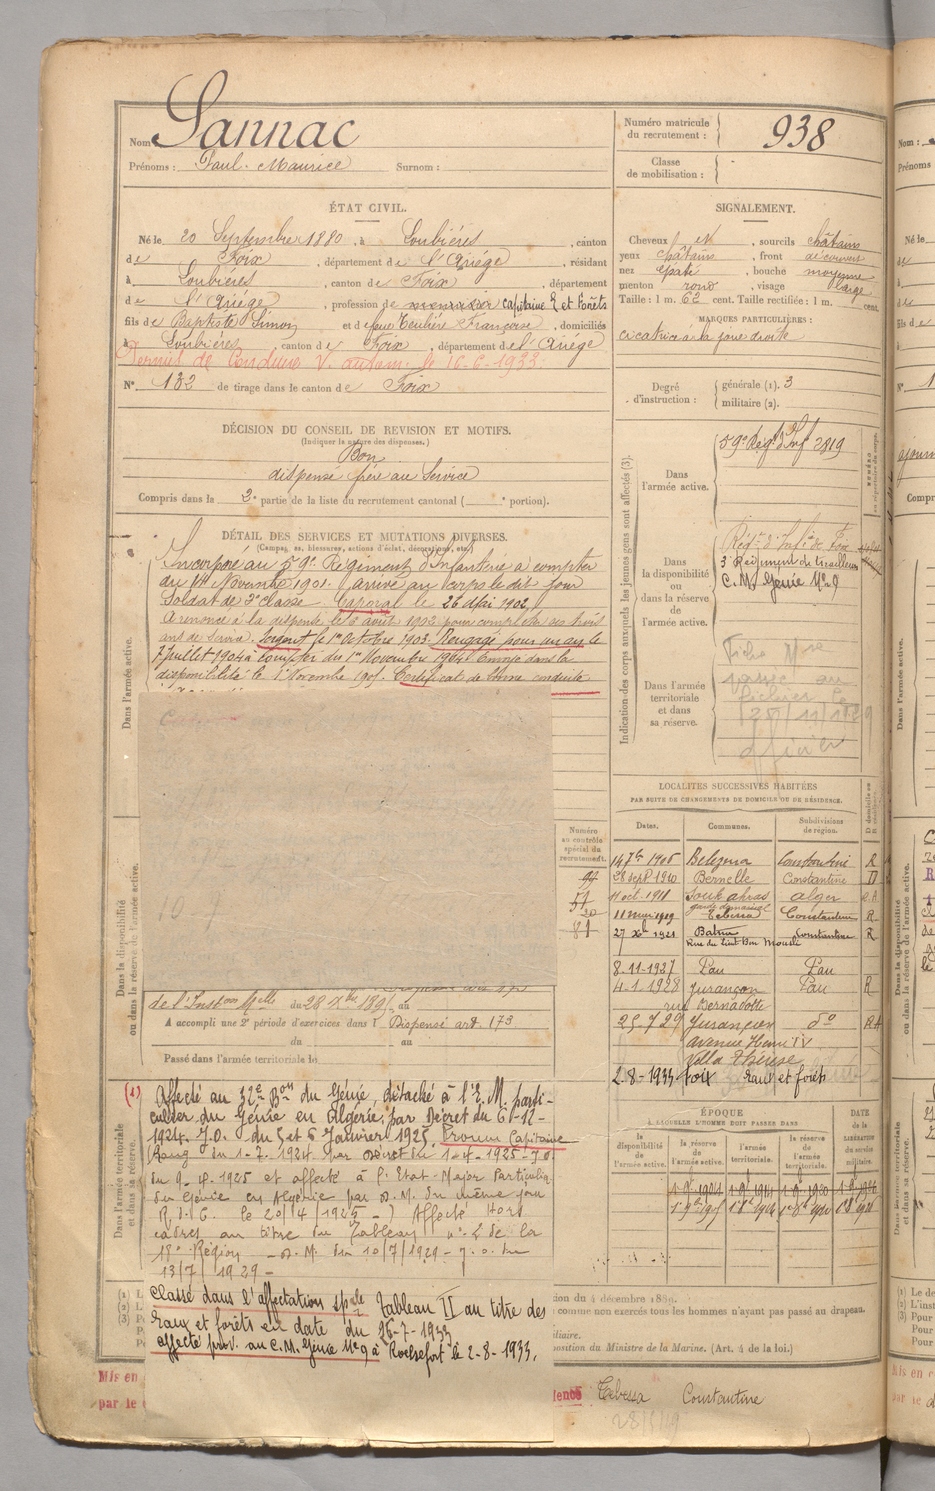 Nom Sannac
Prénoms : Paul-Maurice Surnom :
Numéro matricule du recrutement : 938
Classe de mobilisation :
ÉTAT CIVIL.
Né le 20 Septembre 1880, à Loubières, canton
de Foix, département de l'Ariège, résidant
à Loubières, canton de Foix, département
de l'Ariège, profession de menuisier capitaine E et Forêts
fils de Baptiste Simon et de feue Teulière Françoise, domiciliés
à Loubières, canton de Foix, département de l'Ariège
Permis de Conduire V. autom. le 16-6-1933.
N° 132 de tirage dans le canton de Foix
SIGNALEMENT.
Cheveux et, sourcils châtains
yeux châtains, front découvert
nez épaté, bouche moyenne
menton rond, visage large
Taille : 1 m. 62 cent. Taille rectifiée : 1 m. cent.
MARQUES PARTICULIÈRES :
cicatrice à la joue droite
Degré d'instruction : générale (1). 3
militaire (2).
DÉCISION DU CONSEIL DE REVISION ET MOTIFS.
(Indiquer la nature des dispenses.)
Bon
dispensé frère au Service
Compris dans la 2e partie de la liste du recrutement cantonal ( e portion).
DÉTAIL DES SERVICES ET MUTATIONS DIVERSES.
(Campagnes, blessures, actions d'éclat, décorations, etc.)
Incorporé au 59e Régiment d'Infanterie à compter
du 14 Novembre 1901. arrivé au corps le dit jour
Soldat de 2e classe Caporal le 26 Mai 1902,
A renoncé à la dispense le 6 août 1902 pour compléter ses trois
ans de service. Sergent le 1er Octobre 1903. Rengagé pour un an le
7 juillet 1904 à compter du 1er Novembre 1904. Envoyé dans la
disponibilité le 1er Novembre 1905. Certificat de bonne conduite
Dans l'armée active.
Dans la disponibilité ou dans la réserve de l'armée active.
Dans l'armée territoriale et dans sa réserve.
Indication des corps auxquels les jeunes gens sont affectés (3).
Dans l'armée active.
59e Régt d'Inf 2819
Dans la disponibilité ou dans la réserve de l'armée active.
Régt d'Infie de Foix
3e Régiment de tirailleurs
C. M. Génie N° 9
Dans l'armée territoriale et dans sa réserve.
Fiche Mle
passée au
fichier le
25/11/1929
officier
LOCALITÉS SUCCESSIVES HABITÉES
PAR SUITE DE CHANGEMENTS DE DOMICILE OU DE RÉSIDENCE.
Dates. Communes. Subdivisions de région.
14 7bre 1906 Belezma Constantine R
28 sept 1910 Bernelle Constantine D
11 oct. 1918 Souk ahras alger R.A
garde domanial
11 mai 1919 Tebessa Constantine R
27 Xbre 1921 Batna Constantine R
8-11-1927 Pau Pau
4-1-1928 Jurançon Pau R
rue Bernadotte
25-7 29 Jurançon do RA
avenue Henri IV
Villa Thérèse
2-8-1933 Foix Eaux et forêts
Numéro au contrôle spécial du recrutement.
94
51
20
81
10-9
de l'Instion Mlle du 28 Xbre 1895 au
A accompli une 2e période d'exercices dans l Dispensé art. 173
du au
Passé dans l'armée territoriale le
(1) Affecté au 32e Bon du Génie, détaché à l'E. M. parti-
culier du Génie en Algérie, par Décret du 6-12-
1924. J.O. du 5 et 6 Janvier 1925. Promu Capitaine
(Rang du 1-7-1924 par Décret du 1-4-1925-J.O
du 9-4-1925 et affecté à l'Etat-Major Particulier
du Génie en Algérie par D.M. du même jour
R.D.C. le 20/4/1925-) Affecté Hors
cadres au titre du Tableau n° 2 de la
18e Région - D.M. du 10/7/1929 - J.O. du
13/7/1929-
Classé dans l'affectation sple Tableau II au titre des
Eaux et forêts en date du 26-7-1933
affecté prov. au C.M. Génie N° 9 à Rochefort le 2-8-1933.
ÉPOQUE
À LAQUELLE L'HOMME DOIT PASSER DANS
la disponibilité de l'armée active. la réserve de l'armée active. l'armée territoriale. la réserve de l'armée territoriale. DATE de la LIBÉRATION du service militaire.
1-9-1904 1-9-1914 1-9-1920 1-9-1926
1er 9bre 1905
ion du 4 décembre 1889.
comme non exercés tous les hommes n'ayant pas passé au drapeau.
iliaire.
position du Ministre de la Marine. (Art. 4 de la loi.)
Mis en
par le
Tebessa Constantine
28/5/19